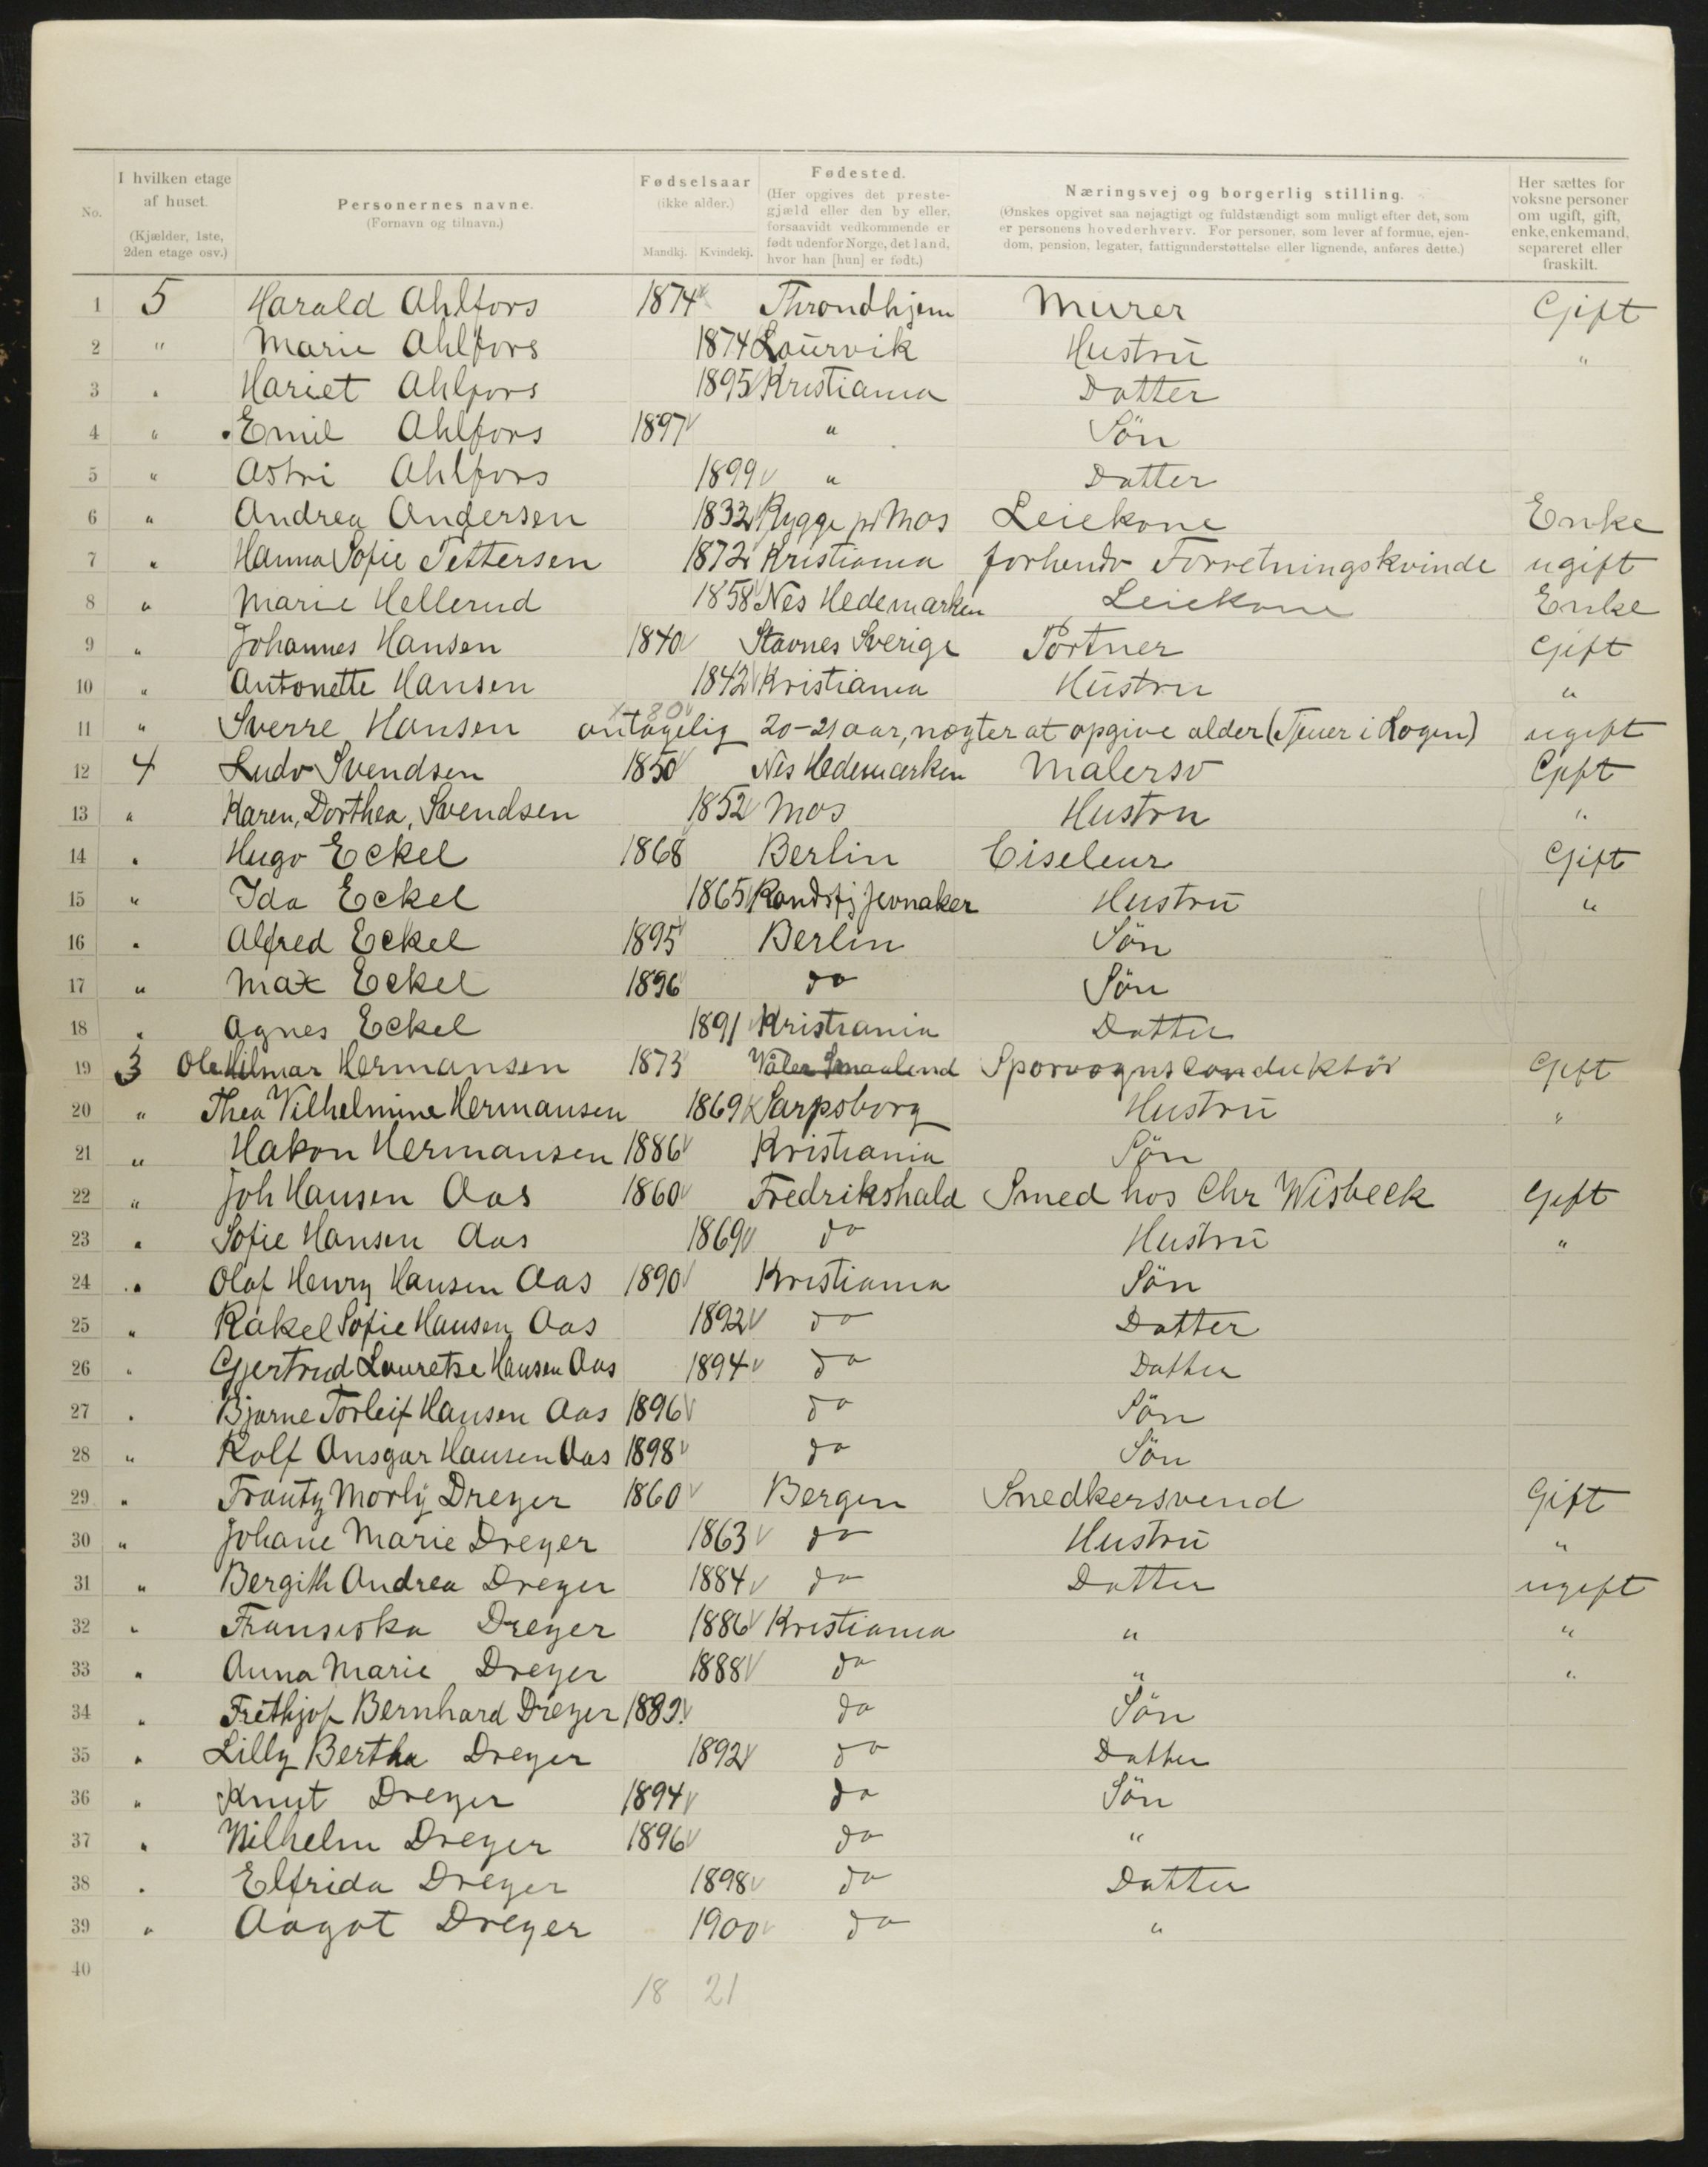 No.
I hvilken etage af huset. (Kjælder, 1ste, 2den etage osv.)
Personernes navne. (Fornavn og tilnavn.)
Fødselsaar (ikke alder.) Mandkj. Kvindekj.
Fødested. (Her opgives det prestegjæld eller den by eller, forsaavidt vedkommende er født udenfor Norge, det land, hvor han [hun] er født.)
Næringsvej og borgerlig stilling. (Ønskes opgivet saa nøjagtigt og fuldstændigt som muligt efter det, som er personens hovederhverv. For personer, som lever af formue, ejendom, pension, legater, fattigunderstøttelse eller lignende, anføres dette.)
Her sættes for voksne personer om ugift, gift, enke, enkemand, separeret eller fraskilt.
1 5 Harald Ahlfors 1874 Throndhjem Murer Gift
2 " Marie Ahlfors 1874 Laurvik Hustru "
3 " Hariet Ahlfors 1895 Kristiania Datter
4 " Emil Ahlfors 1897 " Sön
5 " Astri Ahlfors 1899 " Datter
6 " Andrea Andersen 1832 Rygge pr Mos Leiekone Enke
7 " Hanna Sofie Pettersen 1872 Kristiania forhenv Forretningskvinde ugift
8 " Marie Hellerud 1858 Nes Hedemarken Leiekone Enke
9 " Johannes Hansen 1840 Stavnes Sverige Portner Gift
10 " Antonette Hansen 1842 Kristiania Hustru "
11 " Sverre Hansen 80 antagelig 20-21 aar, nægter at opgive alder (Tjener i Logen) ugift
12 4 Ludv Svendsen 1850 Nes Hedemarken Malersv Gift
13 " Karen, Dorthea, Svendsen 1852 Mos Hustru "
14 " Hugo Eckel 1868 Berlin Ciseleur Gift
15 " Ida Eckel 1865 Randsfj Jevnaker Hustru "
16 " Alfred Eckel 1895 Berlin Sön
17 " Max Eckel 1896 do Sön
18 " Agnes Eckel 1891 Kristiania Datter
19 3 Ole Hilmar Hermansen 1873 Våler Smaalend Sporvognsconduktör Gift
20 " Thea Vilhelmine Hermansen 1869 Sarpsborg Hustru "
21 " Hakon Hermansen 1886 Kristiania Sön
22 " Joh Hansen Aas 1860 Fredrikshald Smed hos Chr Wisbeck Gift
23 " Sofie Hansen Aas 1869 do Hustru "
24 " Olaf Henry Hansen Aas 1890 Kristiania Sön
25 " Rakel Sofie Hansen Aas 1892 do Datter
26 " Gjertrud Lauretse Hansen Aas 1894 do Datter
27 " Bjarne Torleif Hansen Aas 1896 do Sön
28 " Rolf Ansgar Hansen Aas 1898 do Sön
29 " Frantz Morly Dreyer 1860 Bergen Snedkersvend Gift
30 " Johane Marie Dreyer 1863 do Hustru "
31 " Bergith Andrea Dreyer 1884 do Datter ugift
32 " Fransiska Dreyer 1886 Kristiania " "
33 " Anna Marie Dreyer 1888 do " "
34 " Frethjof Bernhard Dreyer do Sön
35 " Lilly Bertha Dreyer 1892 do Datter
36 " Knut Dreyer 1894 do Sön
37 " Wilhelm Dreyer 1896 do "
38 " Elfrida Dreyer 1898 do Datter
39 " Aagot Dreyer 1900 do "
40
18 21